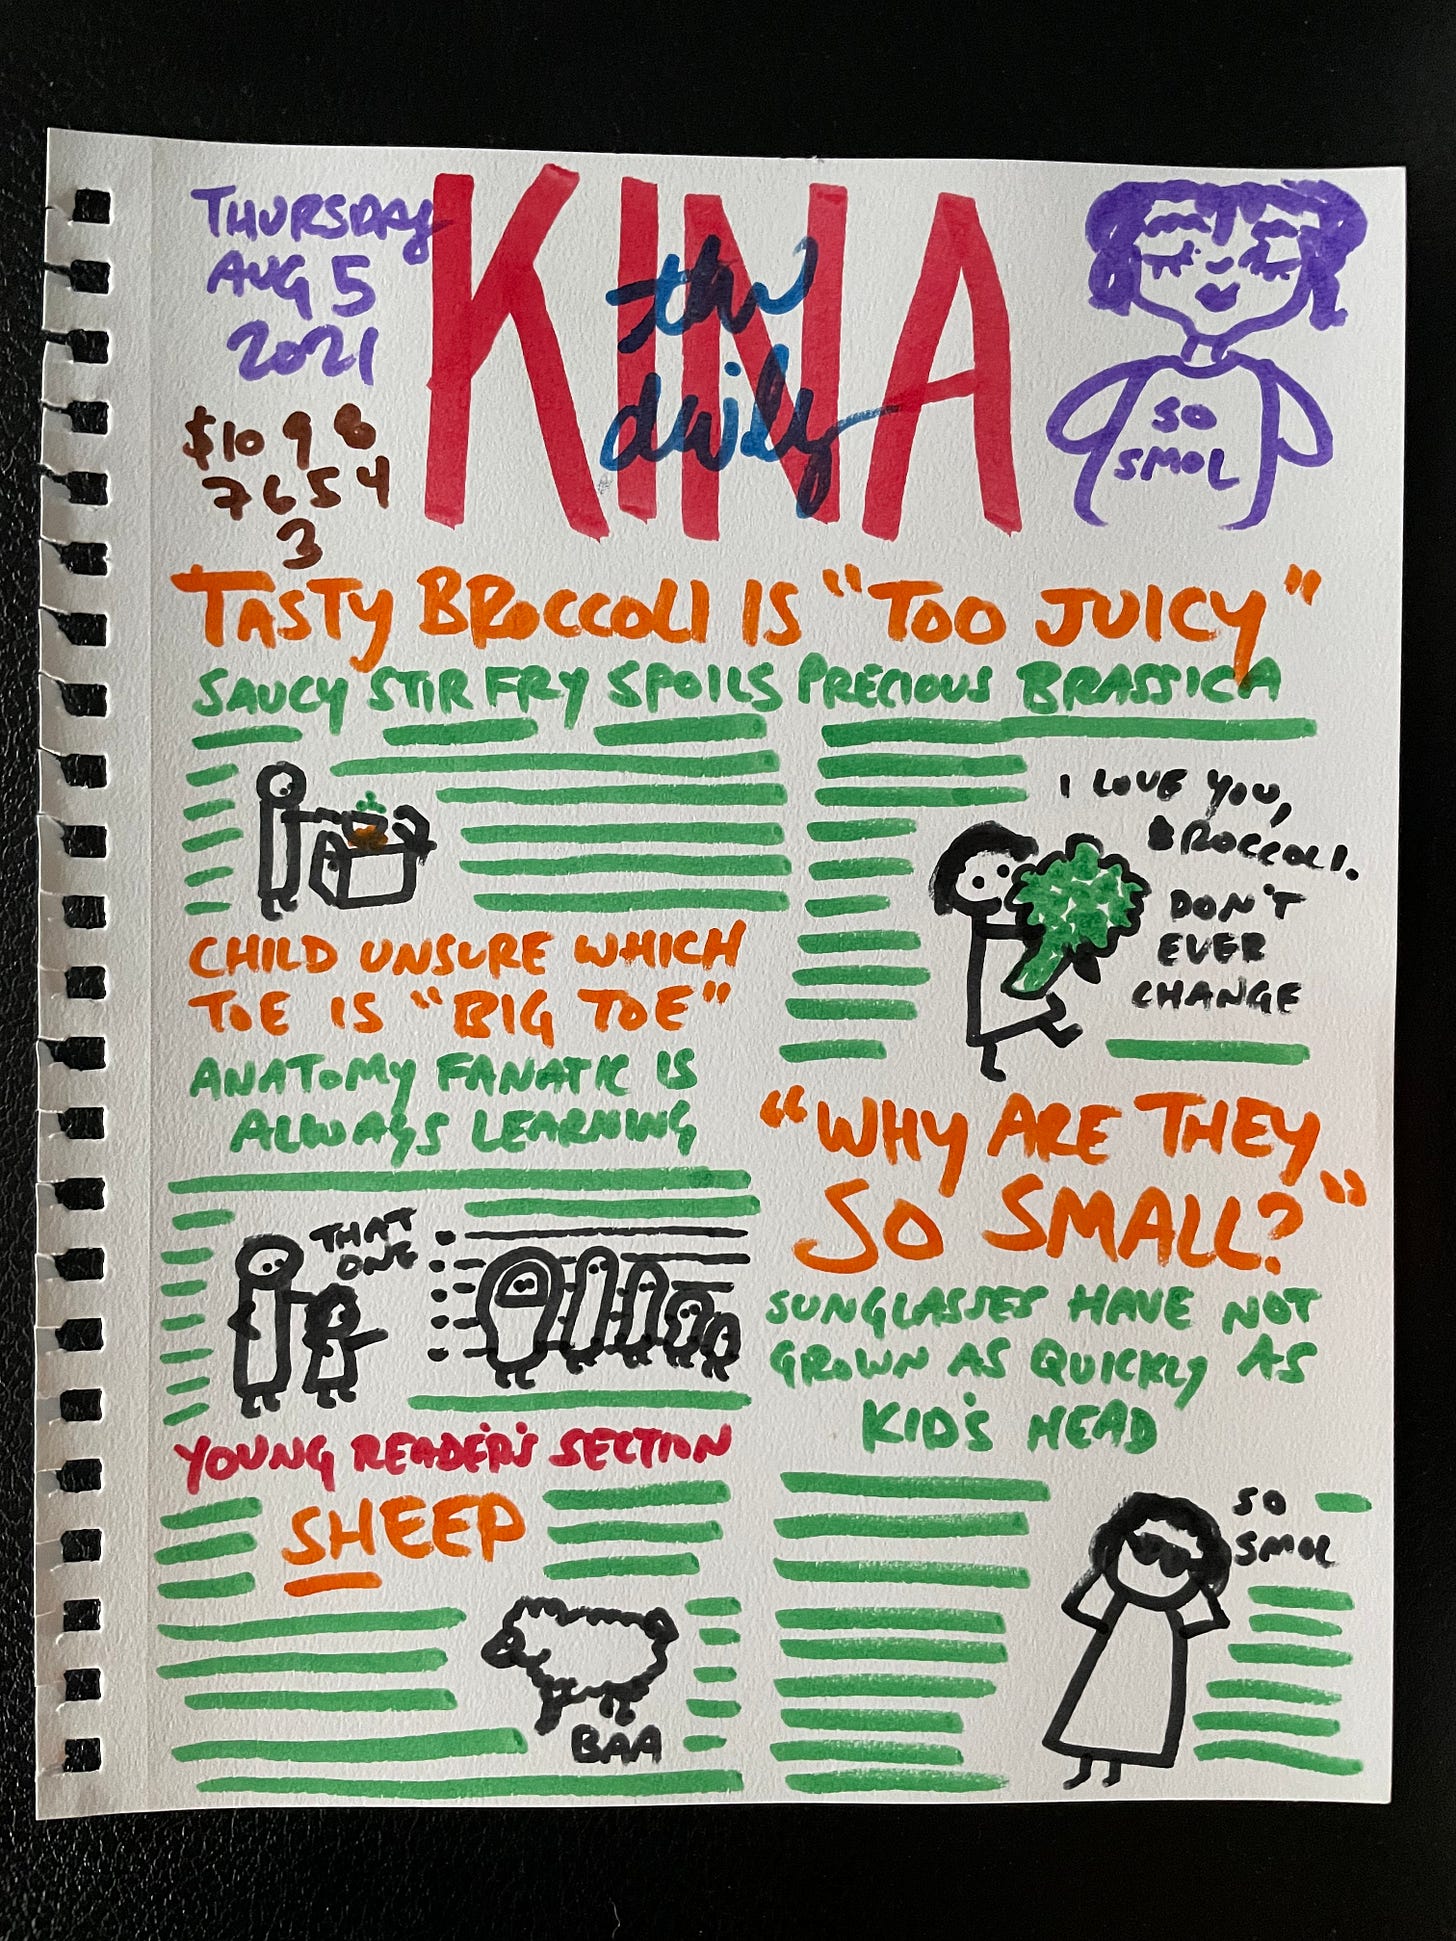 THURSDAY
AUG 5
2021
$10 9 8
7 6 5 4
3
KINA
the
daily
SO
SMOL
TASTY BROCCOLI IS "TOO JUICY"
SAUCY STIR FRY SPOILS PRECIOUS BRASSICA
I LOVE YOU,
BROCCOLI.
DON'T
EVER
CHANGE
CHILD UNSURE WHICH
TOE IS "BIG TOE"
ANATOMY FANATIC IS
ALWAYS LEARNING
THAT
ONE
"WHY ARE THEY
SO SMALL?"
SUNGLASSES HAVE NOT
GROWN AS QUICKLY AS
KID'S HEAD
SO
SMOL
YOUNG READER'S SECTION
SHEEP
BAA